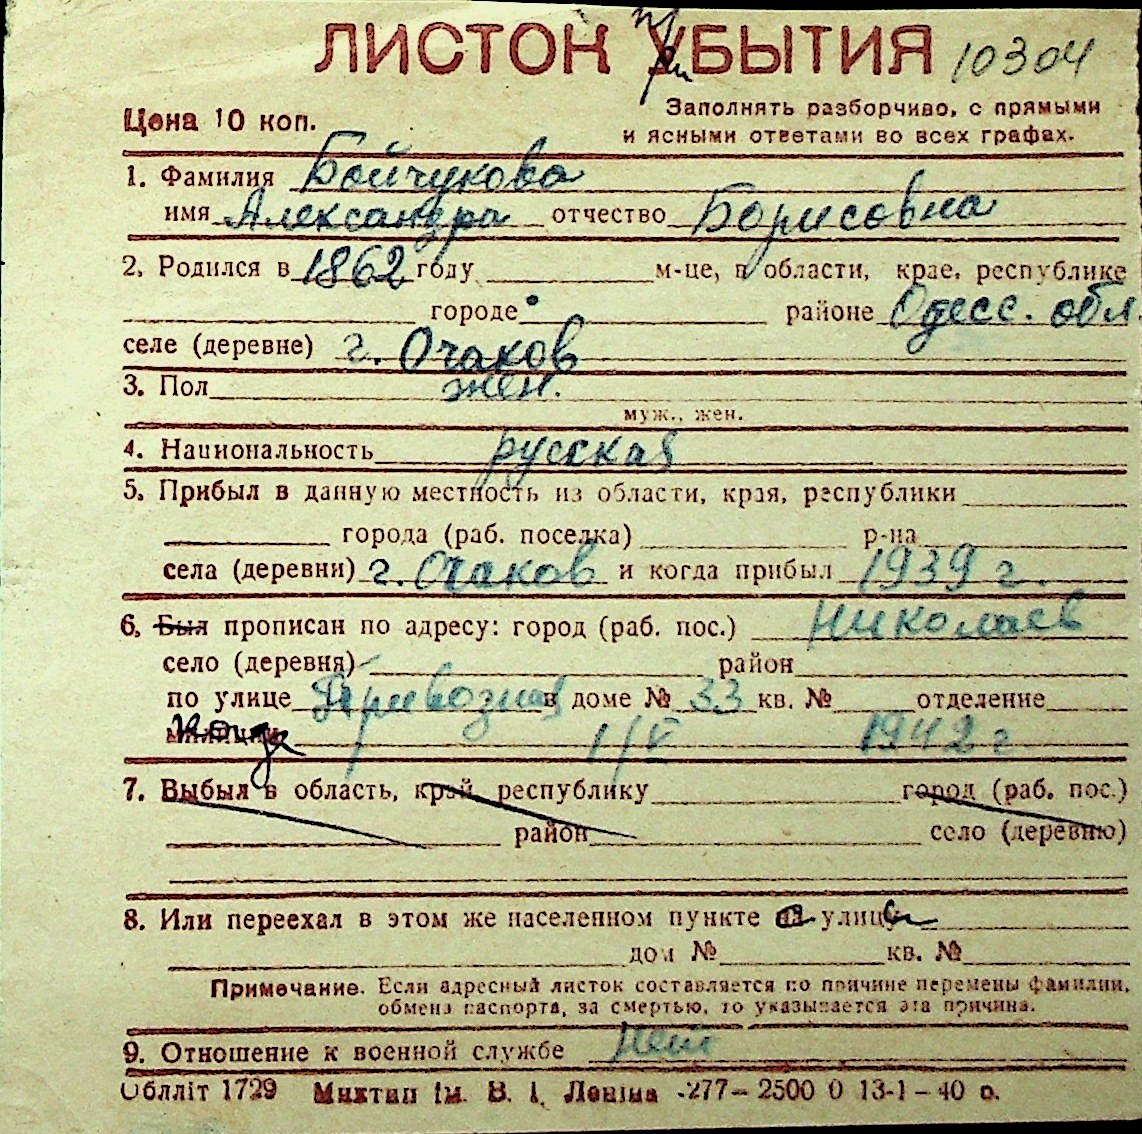 ЛИСТОК УБЫТИЯ при 10304
Цена 10 коп. Заполнять разборчиво, с прямыми
и ясными ответами во всех графах.
1. Фамилия Бойчукова
имя Александра отчество Борисовна
2. Родился в 1862 году м-це, в области, крае, республике
городе районе Одесс. обл.
селе (деревне) г. Очаков
3. Пол жен.
муж., жен.
4. Национальность русская
5. Прибыл в данную местность из области, края, республики
города (раб. поселка) р-на
села (деревни) г. Очаков и когда прибыл 1939 г.
6. Был прописан по адресу: город (раб. пос.) Николаев
село (деревня) район
по улице Привозная в доме № 33 кв. № отделение
милиции когда 1/V 1942 г
7. Выбыл в область, край, республику город (раб. пос.)
район село (деревню)
8. Или переехал в этом же населенном пункте с улицы
дом № кв. №
Примечание. Если адресный листок составляется по причине перемены фамилии,
обмена паспорта, за смертью, то указывается эта причина.
9. Отношение к военной службе нет
Облліт 1729 Миктип ім. В. І. Леніна -277-2500 0 13-1-40 р.